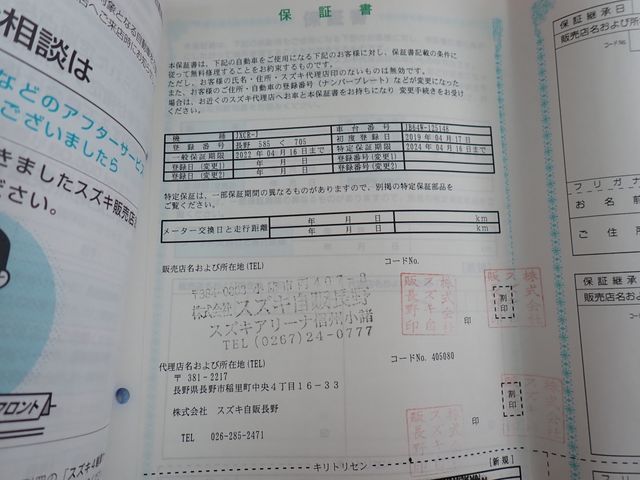 保証書
本保証書は、下記の自動車をご使用になる下記のお客様に対し、保証書記載の条件に
従って無料修理することをお約束するものです。
ただし、お客様の氏名・住所・スズキ代理店印のないものは無効です。
また、お客様のご住所・自動車の登録番号（ナンバープレート）などが変更になった
場合は、お近くのスズキ代理店へお車と本保証書をお持ちになり 変更手続きをお受け
ください。
機種 JXCR-J 車台番号 JB64W-125148
登録番号 長野 585 く 705 初度登録日 2019 年 04 月 17 日
一般保証期限 2022 年 04 月 16 日まで 特定保証期限 2024 年 04 月 16 日まで
登録番号(変更1) 登録番号(変更1)
登録日(変更2) 登録番号(変更2)
特定保証は、一部保証期間の異なるものがありますので、別掲の特定保証部品を
ご覧ください。
メーター交換日と走行距離 年 月 日 km
年 月 日 km
販売店名および所在地(TEL) コードNo.
株式会社 スズキ自販長野
スズキアリーナ信州小諸
TEL (0267) 24-0777
印
割印
株式会社
スズキ自
販長野印
代理店名および所在地(TEL) コードNo. 405080
〒 381-2217
長野県長野市稲里町中央４丁目１６－３３
株式会社 スズキ自販長野
TEL 026-285-2471
印
割印
キリトリセン
【新規】
相談は
などのアフターサービス
ございましたら
きましたスズキ販売店
さい。
フロント
保証継承日
販売店名および所
コードNo.
フリガナ
お名前
ご住所
保証継承
販売店名お
コードNo.
フリガ